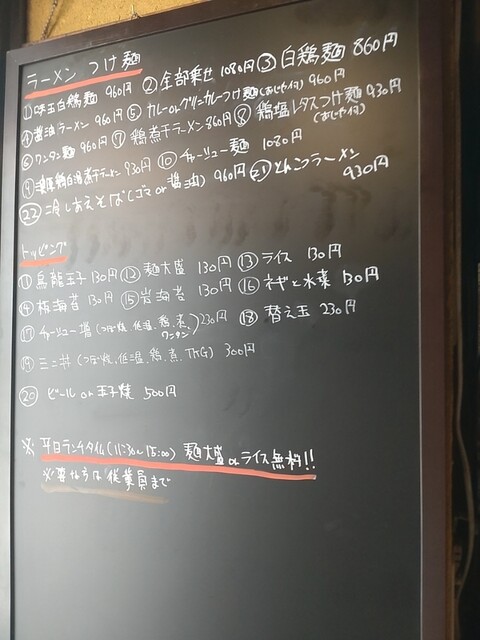 ラーメン つけ麺
① 味玉白鶏麺 960円 ② 全部乗せ 1080円 ③ 白鶏麺 860円
④ 醤油ラーメン 960円 ⑤ カレーorグリーンカレーつけ麺(おじや付) 960円
⑥ ワンタン麺 960円 ⑦ 鶏煮干ラーメン 860円 ⑧ 鶏塩レタスつけ麺 930円
(おじや付)
⑨ 濃厚鶏白湯煮干ラーメン 930円 ⑩ チャーシュー麺 1080円
㉒ 冷しあえそば(ゴマor醤油) 960円 ㉑ とんこつラーメン
930円
トッピング
⑪ 烏龍玉子 130円 ⑫ 麺大盛 130円 ⑬ ライス 130円
⑭ 板海苔 130円 ⑮ 岩海苔 130円 ⑯ ネギと水菜 130円
⑰ チャーシュー増(つぼ焼,低温,鶏,煮,ワンタン) 230円 ⑱ 替え玉 230円
⑲ ミニ丼(つぼ焼,低温,鶏,煮,TKG) 300円
⑳ ビール or 玉子焼 500円
※ 平日ランチタイム(11:30~15:00) 麺大盛orライス無料!!
※要な方は従業員まで